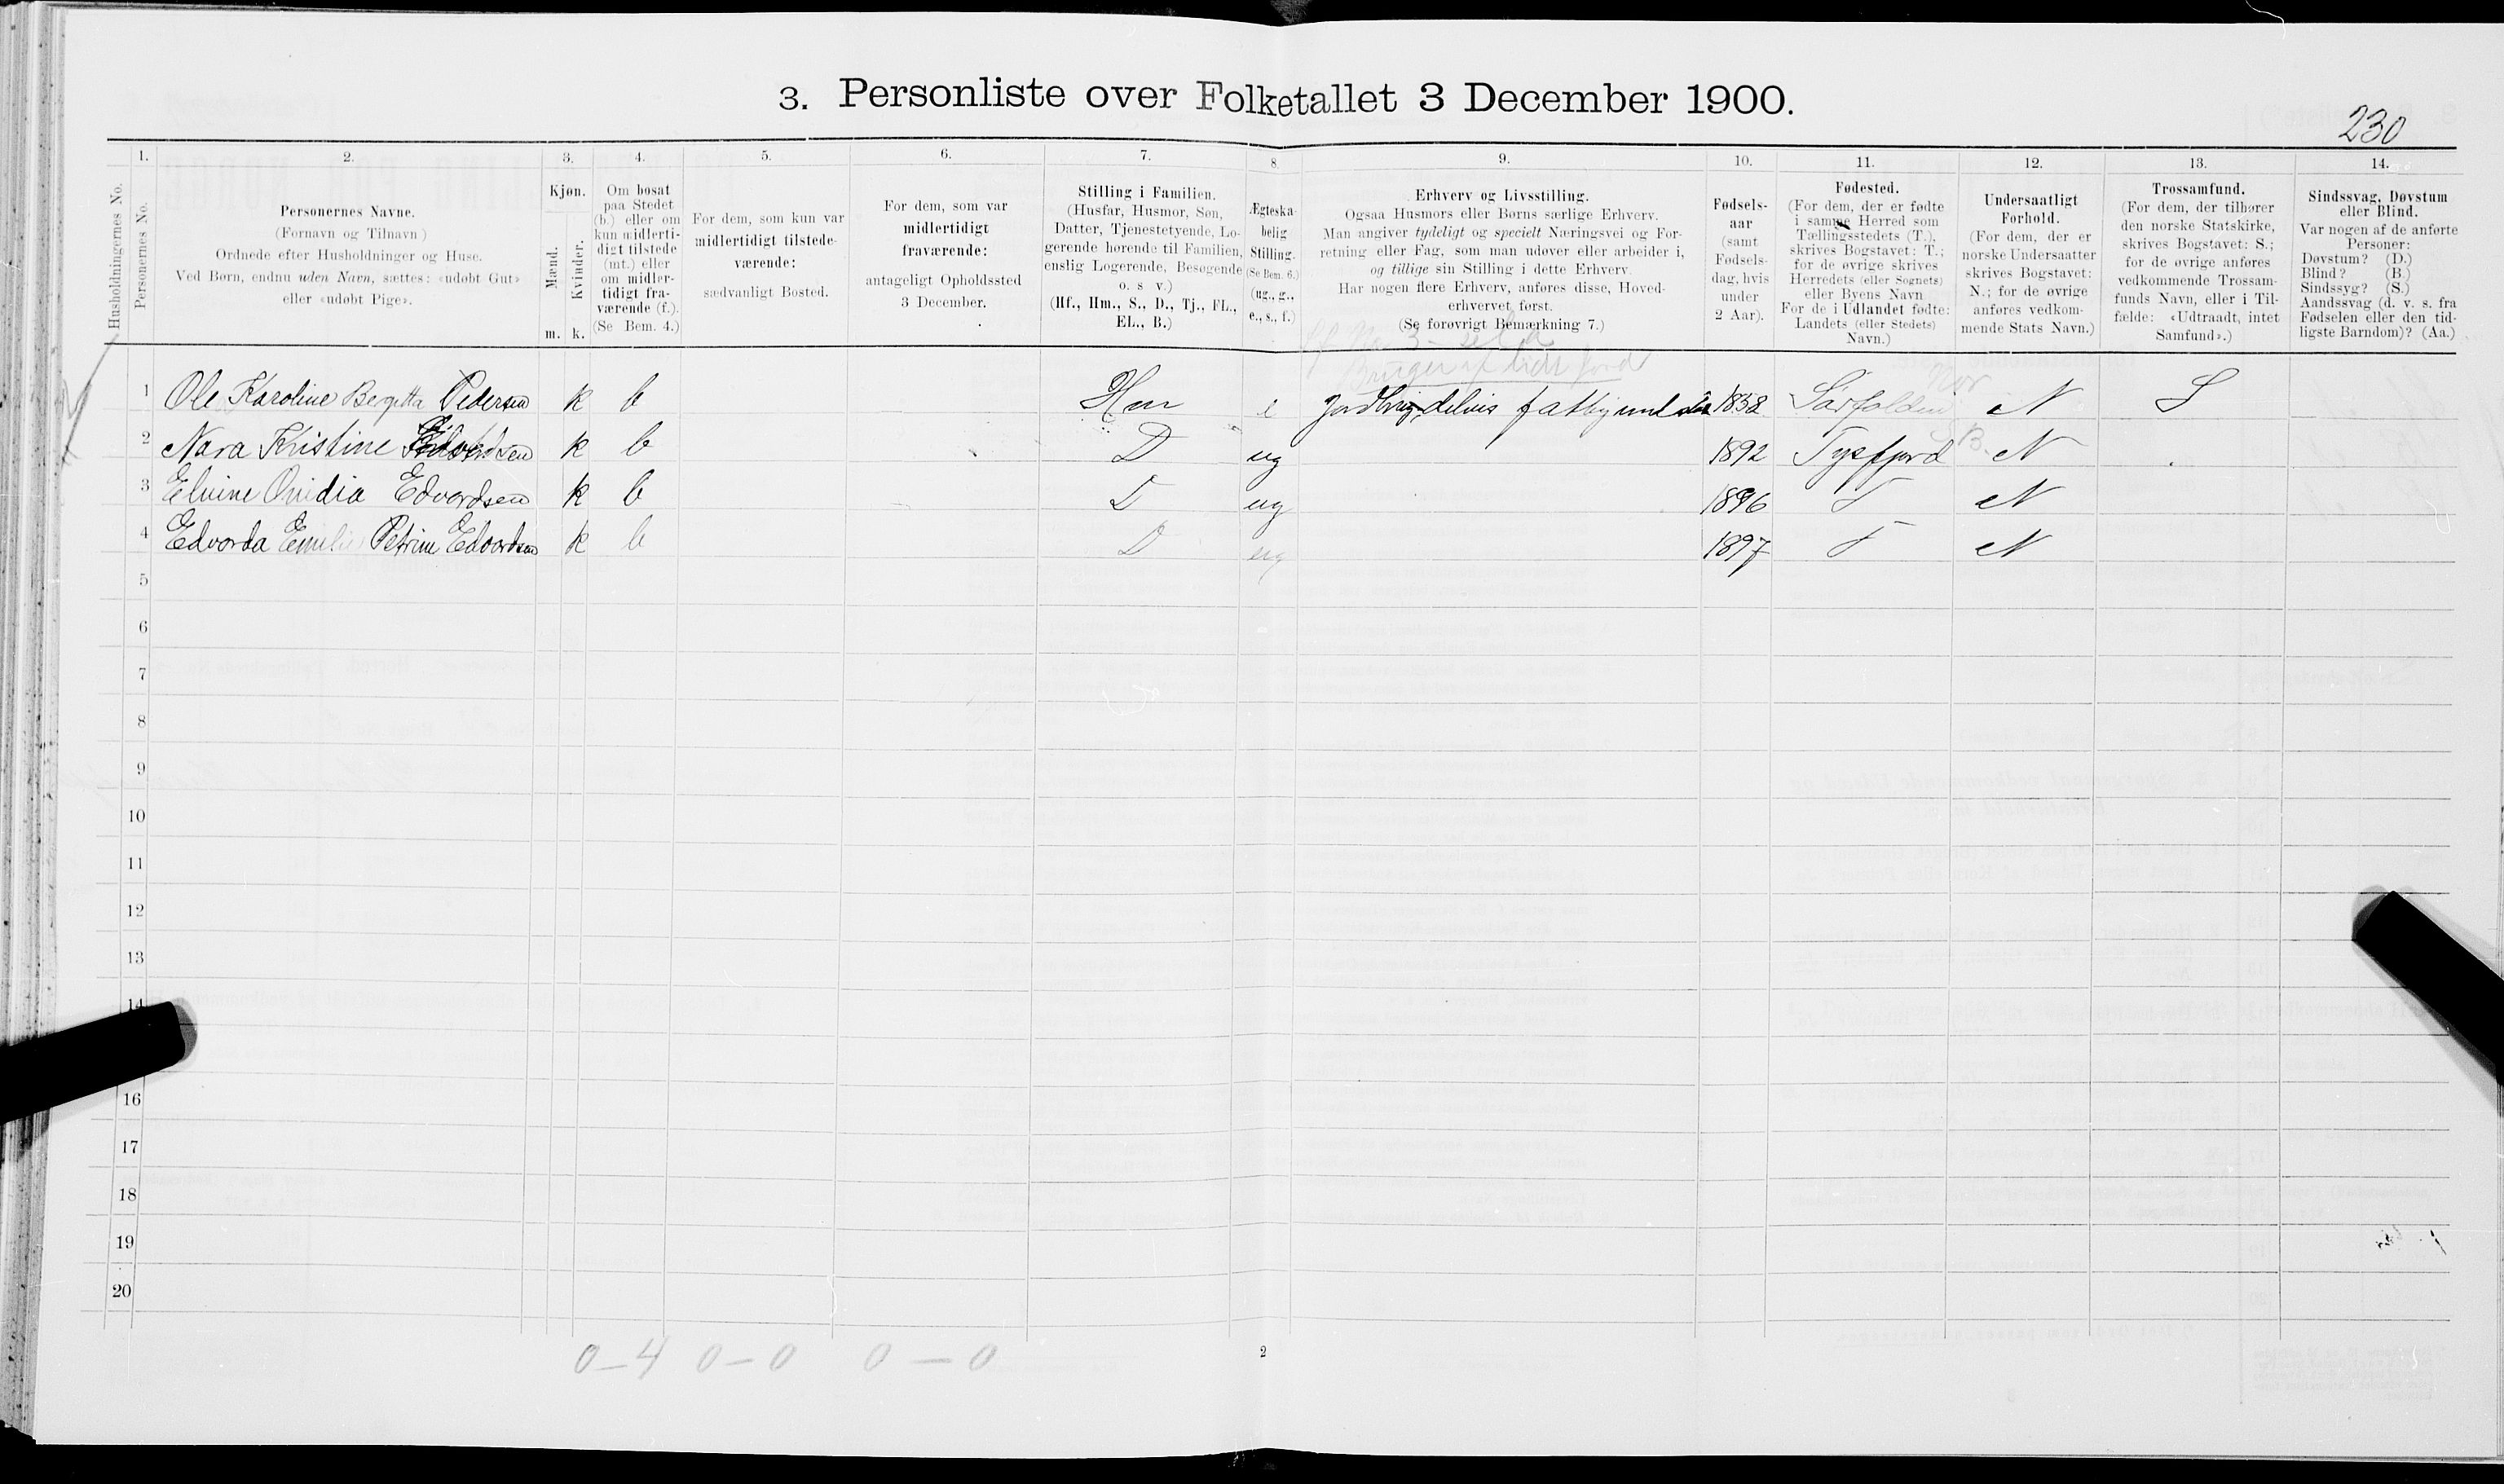 3. Personliste over Folketallet 3 December 1900.
230
1. 2. 3. 4. 5. 6. 7. 8. 9. 10. 11. 12. 13. 14.
Husholdningernes No.
Personernes No.
Personernes Navne.
(Fornavn og Tilnavn)
Ordnede efter Husholdninger og Huse.
Ved Børn, endnu uden Navn, sættes: «udøbt Gut»
eller «udøbt Pige».
Kjøn.
Mænd.
Kvinder.
m. k.
Om bosat
paa Stedet
(b.) eller om
kun midlerti-
digt tilstede
(mt.) eller
om midler-
tidigt fra-
værende (f.).
(Se Bem. 4.)
For dem, som kun var
midlertidigt tilstede-
værende:
sædvanligt Bosted.
For dem, som var
midlertidigt
fraværende:
antageligt Opholdssted
3 December.
Stilling i Familien.
(Husfar, Husmor, Søn,
Datter, Tjenestetyende, Lo-
gerende hørende til Familien,
enslig Logerende, Besøgende
o. s v.)
(Hf., Hm., S., D., Tj., FL.,
EL., B.)
Ægteska-
belig
Stilling.
(Se Bem. 6.)
(ug., g.,
e., s., f.)
Erhverv og Livsstilling.
Ogsaa Husmors eller Børns særlige Erhverv.
Man angiver tydeligt og specielt Næringsvei og For-
retning eller Fag, som man udøver eller arbeider i,
og tillige sin Stilling i dette Erhverv.
Har nogen flere Erhverv, anføres disse, Hoved-
erhvervet først.
(Se forøvrigt Bemærkning 7.)
Fødsels-
aar
(samt
Fødsels-
dag, hvis
under
2 Aar).
Fødested.
(For dem, der er fødte
i samme Herred som
Tællingsstedets (T.),
skrives Bogstavet: T.;
for de øvrige skrives
Herredets (eller Sognets)
eller Byens Navn
For de i Udlandet fødte:
Landets (eller Stedets)
Navn.)
Undersaatligt
Forhold.
(For dem, der er
norske Undersaatter
skrives Bogstavet:
N.; for de øvrige
anføres vedkom-
mende Stats Navn.)
Trossamfund.
(For dem, der tilhører
den norske Statskirke,
skrives Bogstavet: S.;
for de øvrige anføres
vedkommende Trossam-
funds Navn, eller i Til-
fælde: «Udtraadt, intet
Samfund».)
Sindssvag, Døvstum
eller Blind.
Var nogen af de anførte
Personer:
Døvstum? (D.)
Blind? (B.)
Sindssyg? (S.)
Aandssvag (d. v. s. fra
Fødselen eller den tid-
ligste Barndom)? (Aa.)
Bruger af lidt jord
Nor
1 Ole Karoline Bergitta Pedersen k b Hm e delvis 1838 Sørfolden N S
2 Nara Kristine k b D ug 1892 Tysfjord N
3 Elvine Ovidia Edvardsen k b D ug 1896 T N
4 Edvarda Emilie Petrine Edvardsen k b D ug 1897 T N
5
6
7
8
9
10
11
12
13
14
16
17
18
19
20
0–4 0–0 0–0
2